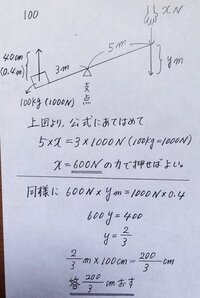 100
xN
5m
40cm
(0.4m)
3m
ym
支点
100kg (1000N)
上図より、公式にあてはめて
5×x=3×1000N (100kg=1000N)
x=600Nの力で押せばよい。
同様に 600N×ym=1000N×0.4
600y=400
y=2/3
2/3 m×100cm=200/3 cm
答 200/3 cmおす